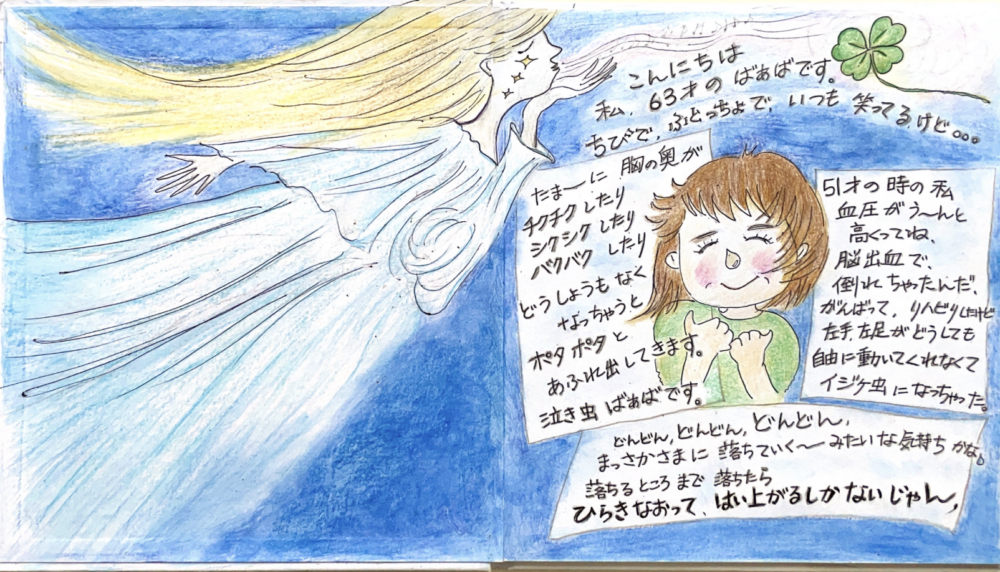 こんにちは
私、63才の ばぁばです。
ちびで、ふとっちょで、いつも 笑ってるけど…
たま〜に 胸の奥が
チクチク したり
シクシク したり
バクバク したり
どうしょうも なく
なっちゃうと
ポタポタと
あふれ出してきます。
泣き虫 ばぁばです。
51才の時の私
血圧がう〜んと
高くってね、
脳出血で、
倒れちゃったんだ、
がんばって、リハビリしたけど
左手、左足がどうしても
自由に動いてくれなくて
イジケ虫になっちゃった。
どんどん、どんどん、どんどん、
まっさかさまに 落ちていく〜みたいな気持ちかな。
落ちるところまで 落ちたら
ひらきなおって、はい上がるしかないじゃん、